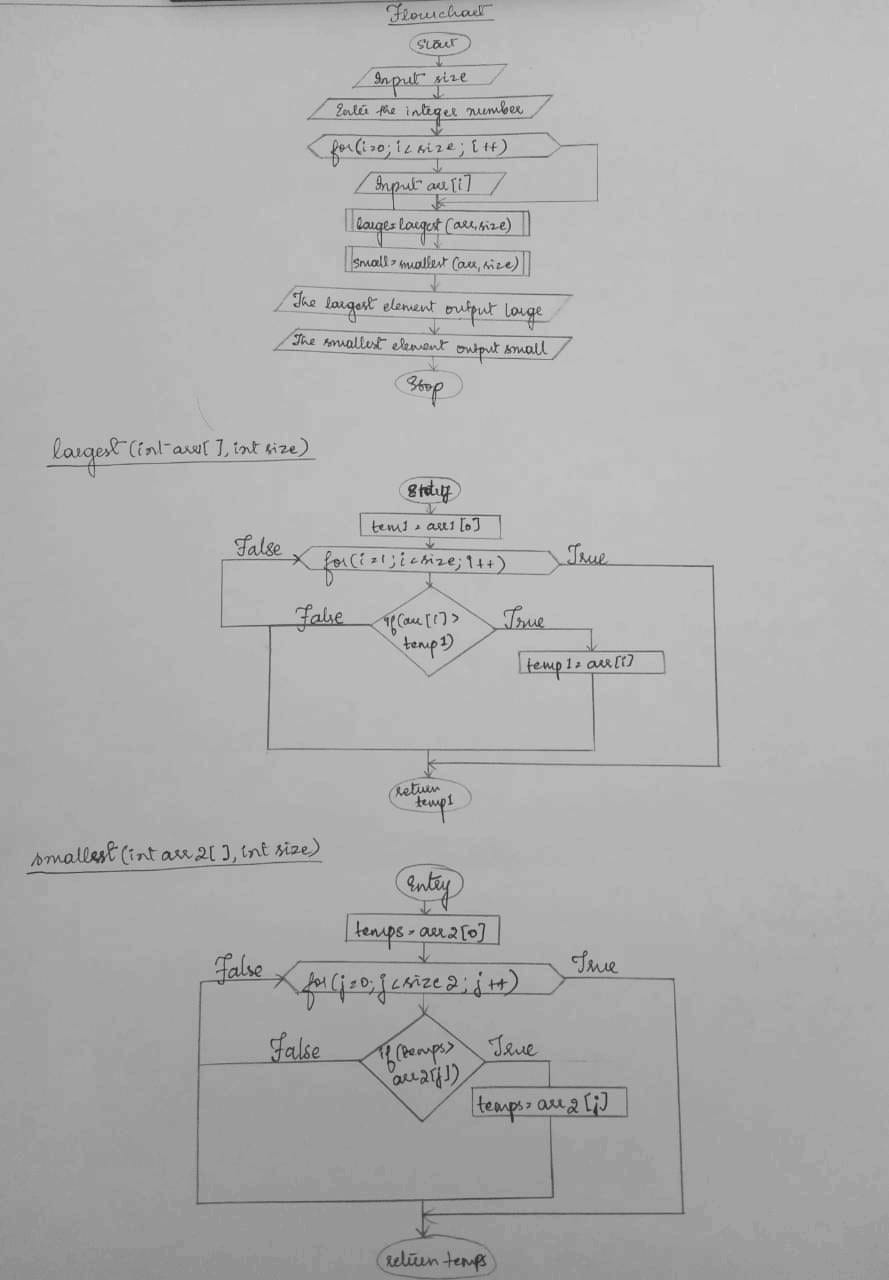 Flowchart
Start
Input size
Enter the integer number
for(i=0; i<size; i++)
Input arr[i]
large=largest(arr,size)
small=smallest(arr,size)
The largest element output large
The smallest element output small
Stop
largest(int arr[],int size)
tem1=arr1[0]
False
for(i=1;i<size;i++)
True
False
if(arr[i]>
temp1)
True
temp1=arr[i]
return
temp1
smallest(int arr2[], int size)
Entry
temps=arr2[0]
False
for(j=0;j<size2; j++)
True
False
if(temps>
arr2[j])
True
temps=arr2[j]
return temps